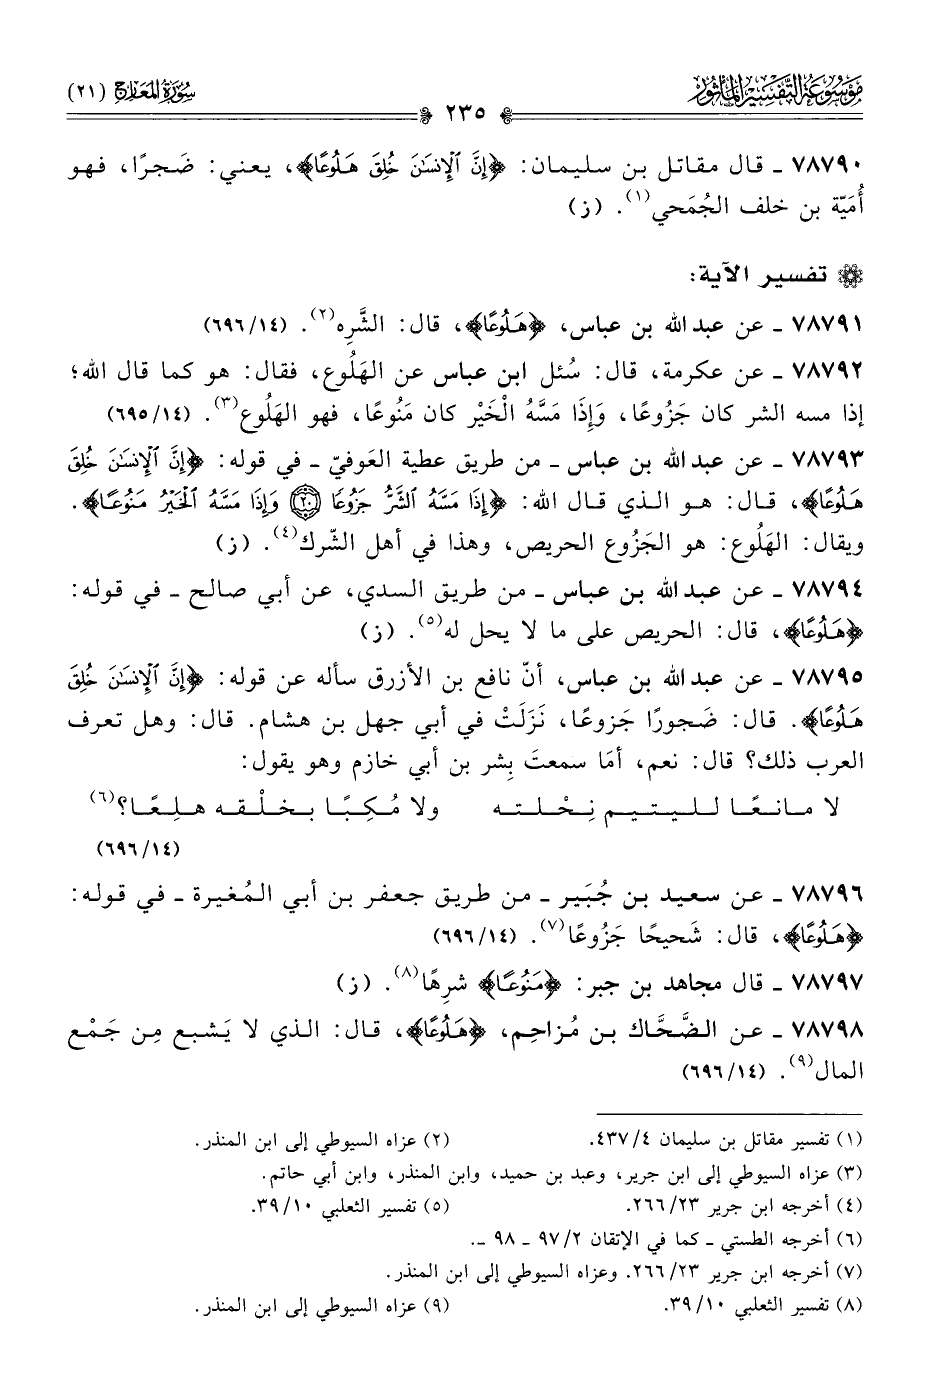 مَوْسُوعَةُ التَّفْسِيرِ المَأْثُور
٢٣٥
سُورَةُ المَعَارِج (٢١)
٧٨٧٩٠ ـ قال مقاتل بن سليمان: ﴿إِنَّ ٱلْإِنسَٰنَ خُلِقَ هَلُوعًا﴾، يعني: ضَجرًا، فهو
أُمَيّة بن خلف الجُمَحي(١). (ز)
تفسير الآية:
٧٨٧٩١ ـ عن عبد الله بن عباس، ﴿هَلُوعًا﴾، قال: الشَّرِه(٢). (١٤/٦٩٦)
٧٨٧٩٢ ـ عن عكرمة، قال: سُئل ابن عباس عن الهَلُوع، فقال: هو كما قال الله؛
إذا مسه الشر كان جَزُوعًا، وَإِذَا مَسَّهُ الْخَيْر كان مَنُوعًا، فهو الهَلُوع(٣). (١٤/٦٩٥)
٧٨٧٩٣ ـ عن عبد الله بن عباس ـ من طريق عطية العَوفيّ ـ في قوله: ﴿إِنَّ ٱلْإِنسَٰنَ خُلِقَ
هَلُوعًا﴾، قال: هو الذي قال الله: ﴿إِذَا مَسَّهُ ٱلشَّرُّ جَزُوعًا ٢٠ وَإِذَا مَسَّهُ ٱلْخَيْرُ مَنُوعًا﴾.
ويقال: الهَلُوع: هو الجَزُوع الحريص، وهذا في أهل الشّرك(٤). (ز)
٧٨٧٩٤ ـ عن عبد الله بن عباس ـ من طريق السدي، عن أبي صالح ـ في قوله:
﴿هَلُوعًا﴾، قال: الحريص على ما لا يحل له(٥). (ز)
٧٨٧٩٥ ـ عن عبد الله بن عباس، أنّ نافع بن الأزرق سأله عن قوله: ﴿إِنَّ ٱلْإِنسَٰنَ خُلِقَ
هَلُوعًا﴾. قال: ضَجورًا جَزوعًا، نَزَلَتْ في أبي جهل بن هشام. قال: وهل تعرف
العرب ذلك؟ قال: نعم، أمَا سمعتَ بِشر بن أبي خازم وهو يقول:
لا مـانـعًـا لـلـيـتـيـم نِـحْـلـتـه ولا مُـكِـبًـا بـخـلْـقـه هـلِـعًـا؟(٦)
(١٤/٦٩٦)
٧٨٧٩٦ ـ عن سعيد بن جُبَير ـ من طريق جعفر بن أبي المُغيرة ـ في قوله:
﴿هَلُوعًا﴾، قال: شَحيحًا جَزُوعًا(٧). (١٤/٦٩٦)
٧٨٧٩٧ ـ قال مجاهد بن جبر: ﴿مَنُوعًا﴾ شرِهًا(٨). (ز)
٧٨٧٩٨ ـ عن الضَّحَّاك بن مُزاحِم، ﴿هَلُوعًا﴾، قال: الذي لا يَشبع مِن جَمْع
المال(٩). (١٤/٦٩٦)
(١) تفسير مقاتل بن سليمان ٤/٤٣٧. (٢) عزاه السيوطي إلى ابن المنذر.
(٣) عزاه السيوطي إلى ابن جرير، وعبد بن حميد، وابن المنذر، وابن أبي حاتم.
(٤) أخرجه ابن جرير ٢٣/٢٦٦. (٥) تفسير الثعلبي ١٠/٣٩.
(٦) أخرجه الطستي ـ كما في الإتقان ٢/٩٧ ـ ٩٨ ـ.
(٧) أخرجه ابن جرير ٢٣/٢٦٦. وعزاه السيوطي إلى ابن المنذر.
(٨) تفسير الثعلبي ١٠/٣٩. (٩) عزاه السيوطي إلى ابن المنذر.